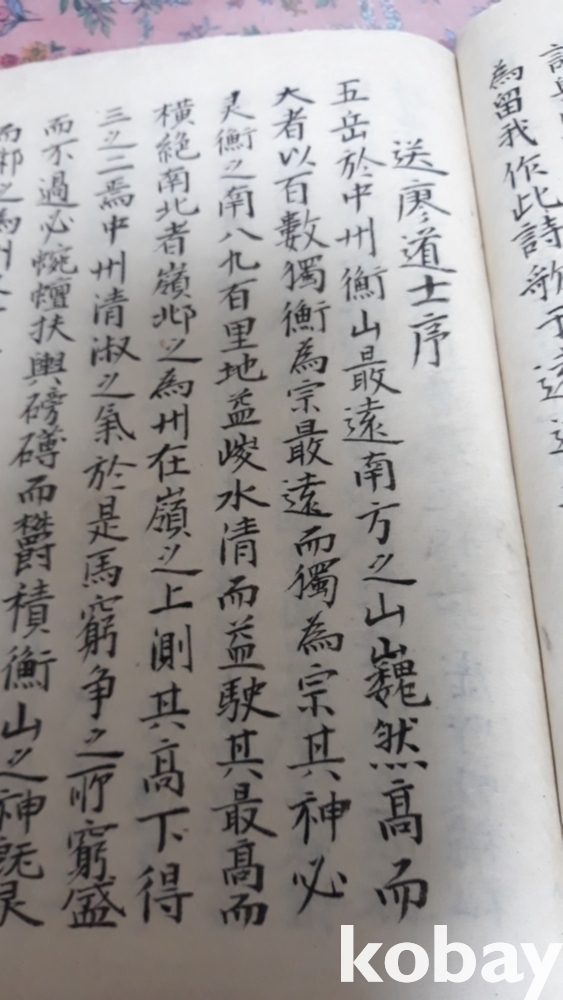 為留我作此詩歌于遠
送庚道士序
五岳於中州衡山最遠南方之山巍然高而
大者以百數獨衡為宗最遠而獨為宗其神必
灵衡之南八九百里地益峻水清而益駛其最高而
橫絶南北者嶺郴之為州在嶺之上測其高下得
三之二焉中州清淑之氣於是馬窮争之所窮盛
而不過必蜿蟺扶輿磅礴而欝積衡山之神既灵
而郴之為州
kobay